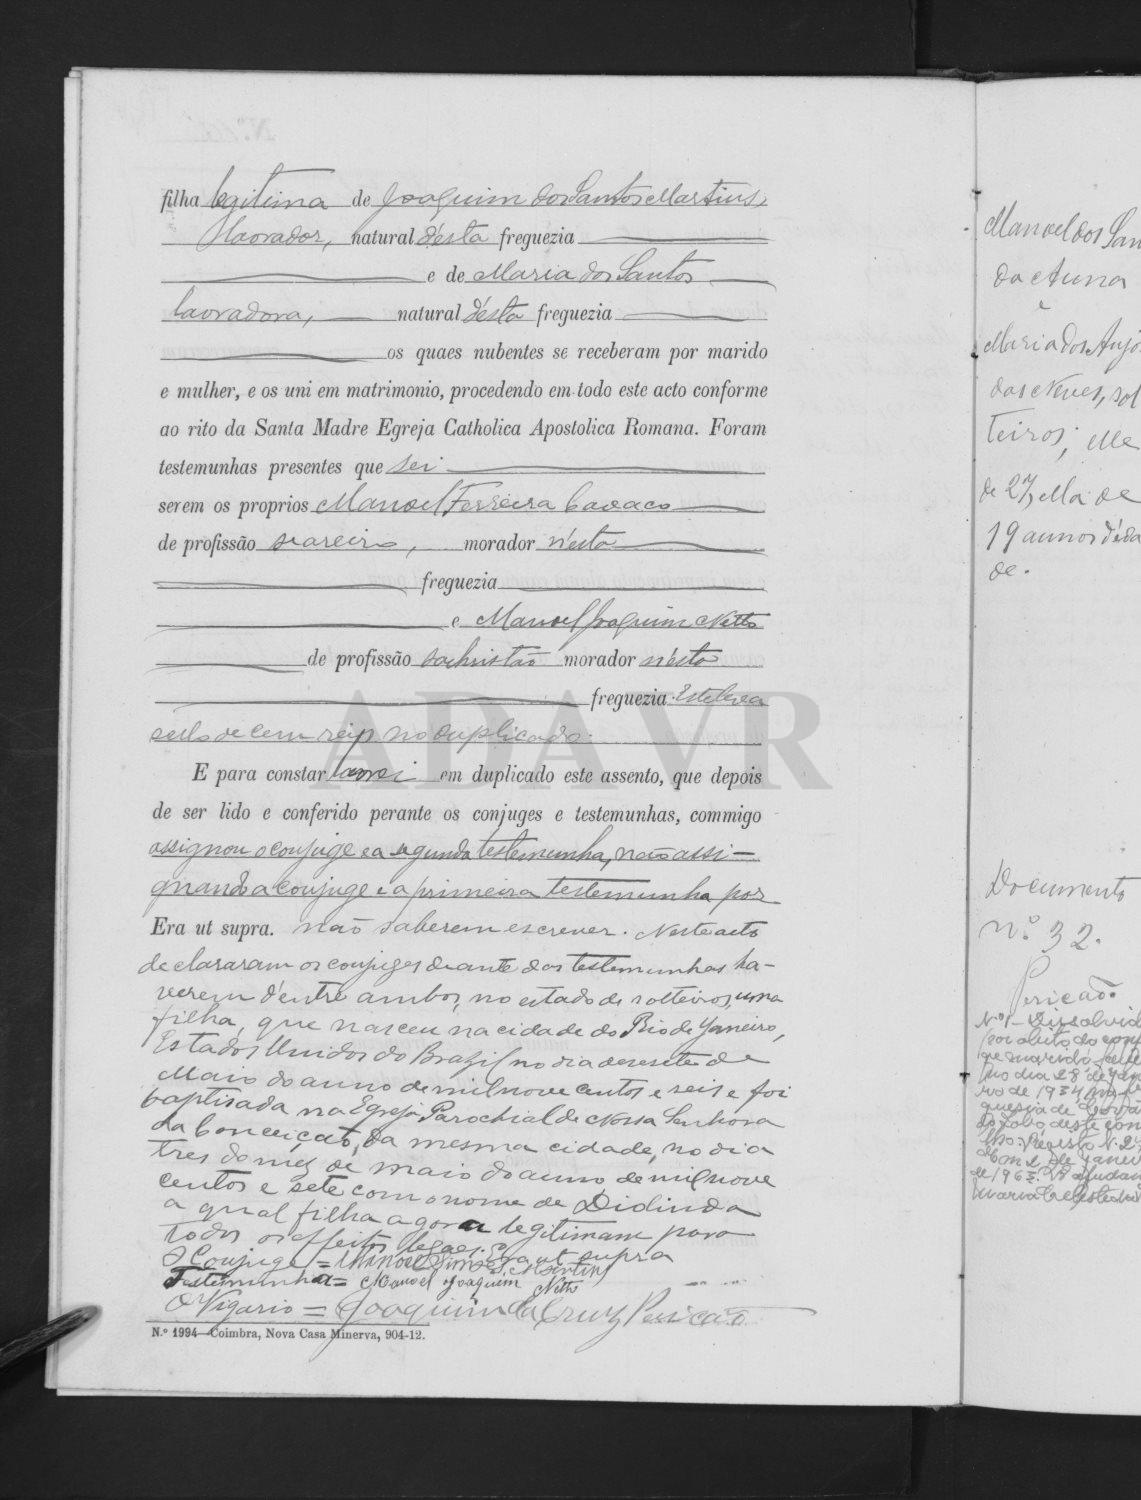 filha legitima de Joaquim dos Santos Martins,
lavrador, natural d'ésta freguezia
e de Maria dos Santos
lavradora, natural d'ésta freguezia
os quaes nubentes se receberam por marido
e mulher, e os uni em matrimonio, procedendo em todo este acto conforme
ao rito da Santa Madre Egreja Catholica Apostolica Romana. Foram
testemunhas presentes que sei
serem os proprios Manoel Ferreira Cavaco
de profissão seareiro, morador n'ésta
freguezia
e Manoel Joaquim Netto
de profissão sachristão morador n'ésta
freguezia. Esteleva
sello de cem reis no duplicado.
E para constar lavrei em duplicado este assento, que depois
de ser lido e conferido perante os conjuges e testemunhas, commigo
assignou o conjuge e a segunda testemunha, não assi-
gnando a conjuge e a primeira testemunha por
Era ut supra. não saberem escrever. Neste acto
declararam os conjuges deante das testemunhas ha-
verem d'entre ambos, no estado de solteiros, uma
filha, que nasceu na cidade do Rio de Janeiro,
Estados Unidos do Brazil no dia dezesete de
Maio do anno de mil nove centos e seis e foi
baptisada na Egreja Parochial de Nossa Senhora
da Conceição, da mesma cidade, no dia
tres do mez de maio do anno de mil nove
centos e sete com o nome de Diolinda
a qual filha agora legitimam para
todos os effeitos legaes. Era ut supra
O Conjuge = Manoel Simões Martins
Testemunha = Manoel Joaquim Netto
O Vigario = Joaquim da Cruz Pericão
N.º 1994—Coimbra, Nova Casa Minerva, 904-12.
ADAVR
Manoel dos San
da
e
Maria dos Anjo
das Neves, sol
teiros; elle
de 27, ella de
19 annos d'eda
de.
Documento
n.º 32.
Pericão
Nº 1 - Dissolvid
por obito do conj
ge marido
no dia 28 de jan
ro de 1934 na fre
guesia de Covão
do Lobo, deste con
lho. Registo N. 2
de Janei
de 1963. O ajudan
Maria Celeste